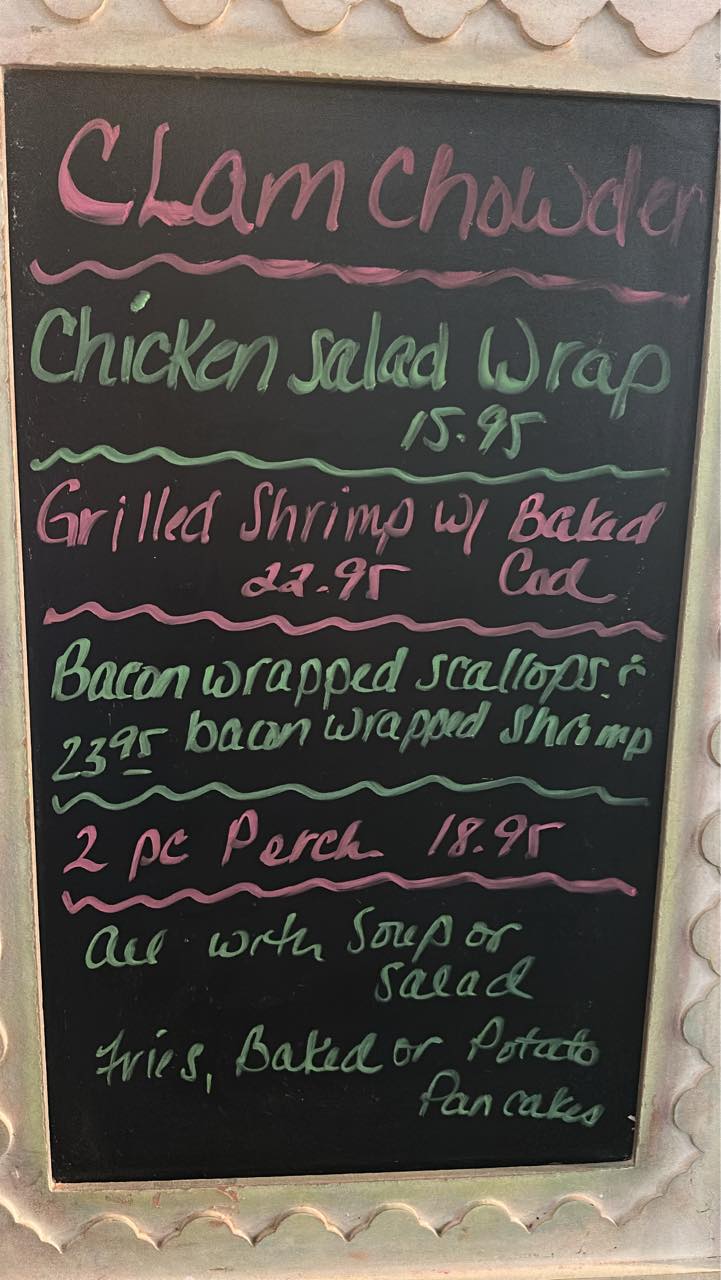 Clam Chowder
Chicken Salad Wrap
15.95
Grilled Shrimp w/ Baked
22.95 Cod
Bacon wrapped scallops &
23.95 bacon wrapped shrimp
2 pc Perch 18.95
All with Soup or
Salad
Fries, Baked or Potato
Pancakes